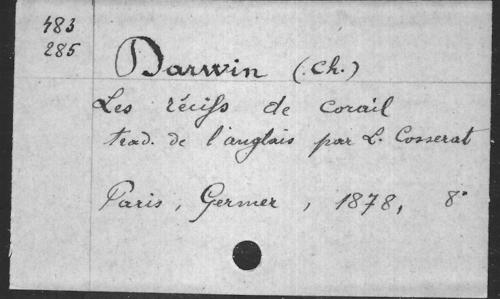 483
285
Darwin (Ch.)
Les récifs de corail
trad. de l'anglais par L. Cosserat
Paris, Germer, 1878, 8°